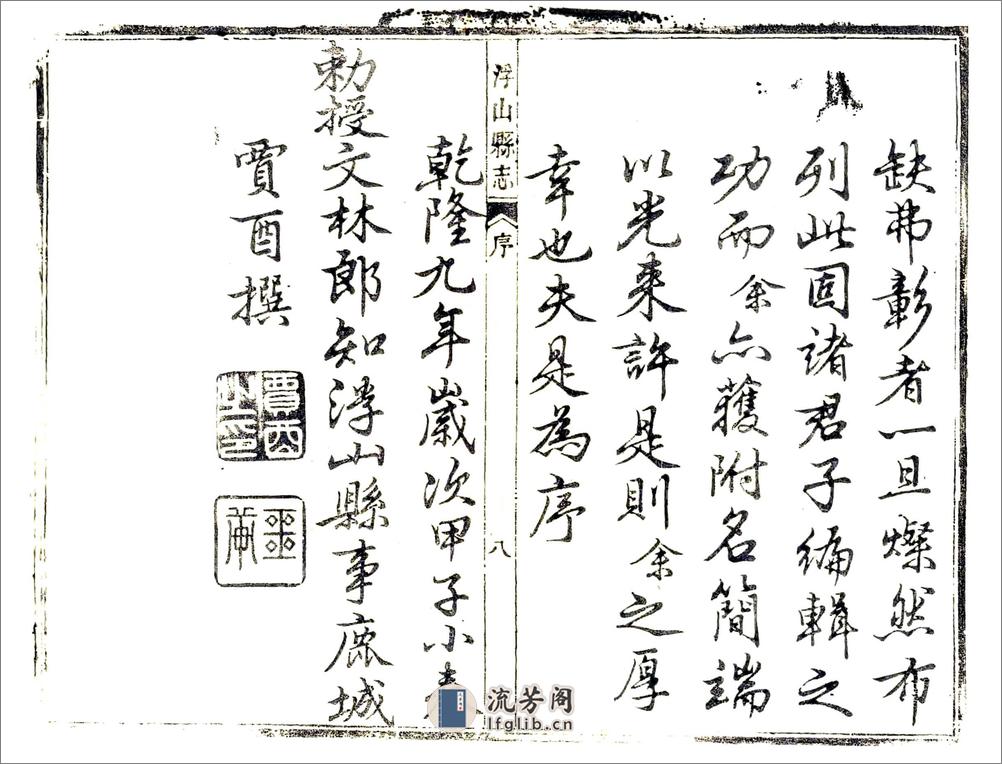 缺弗彰者一旦燦然布
列此固諸君子編輯之
功而余亦獲附名簡端
以光来許是則余之厚
幸也夫是為序
浮山縣志
序
八
乾隆九年歲次甲子小春
勅授文林郎知浮山縣事鹿城
賈酉撰
賈酉之印
流芳阁
lfglib.cn